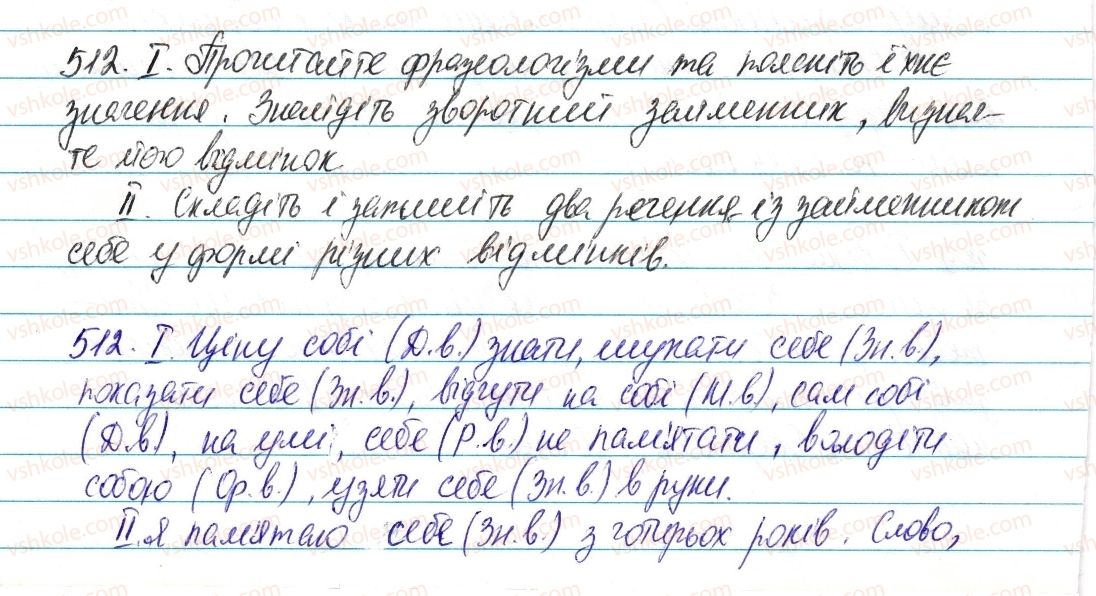 512. I. Прочитайте фразеологізми та поясніть їхнє
значення. Знайдіть зворотний займенник, визнач-
те його відмінок
II. Складіть і запишіть два речення із займенником
себе у формі різних відмінків.
512. I. Ціну собі (Д.в.) знати, шукати себе (Зн.в.),
показати себе (Зн.в.), відчути на собі (М.в), сам собі
(Д.в), на умі, себе (Р.в.) не пам'ятати, володіти
собою (Ор.в.), узяти себе (Зн.в.) в руки.
II. Я пам'ятаю себе (Зн.в.) з чотирьох років. Слово,